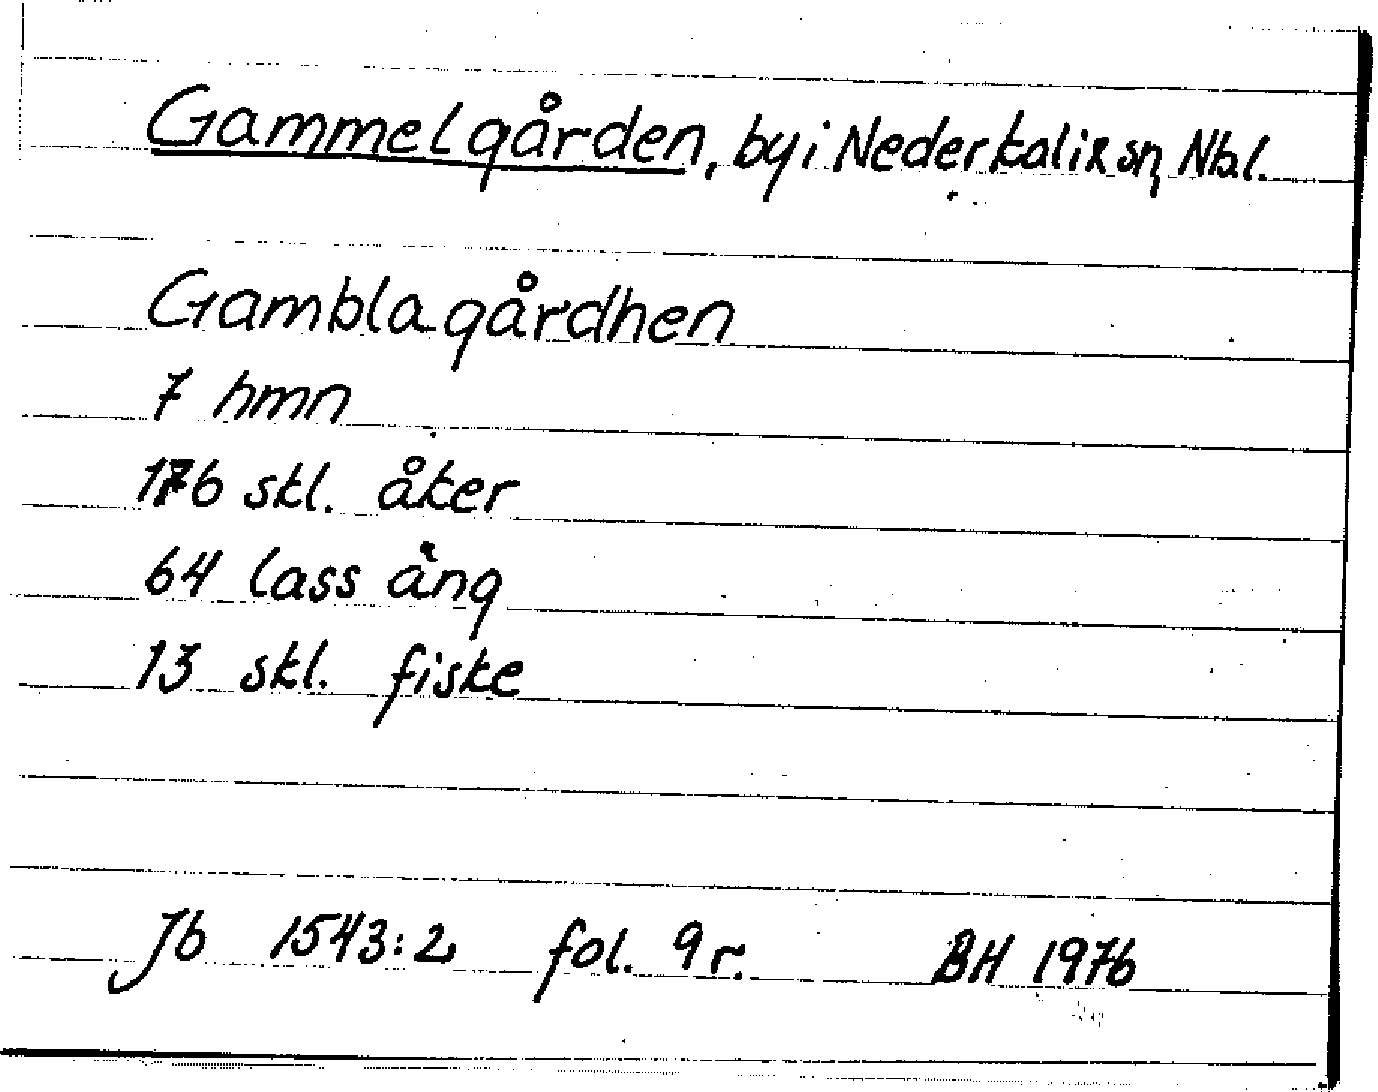 Gammelgården, by i Nederkalix sn, Nbl.
Gambla gårdhen
7 hmn
176 skl. åker
64 lass äng
13 skl. fiske
Jb 1543:2 fol. 9 r. BH 1976